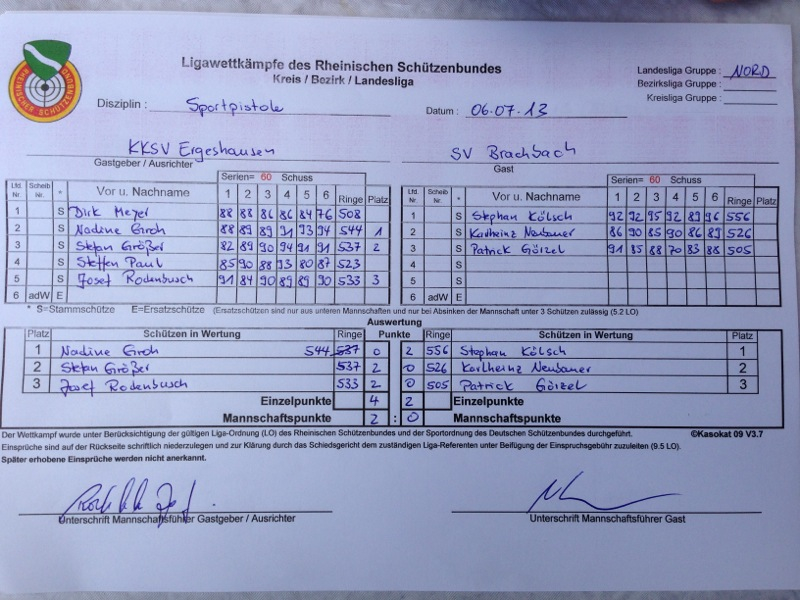 Ligawettkämpfe des Rheinischen Schützenbundes
Kreis / Bezirk / Landesliga
RHEINISCHER SCHÜTZENBUND
Landesliga Gruppe : NORD
Bezirksliga Gruppe :
Kreisliga Gruppe :
Disziplin : Sportpistole Datum : 06.07.13
KKSV Ergeshausen SV Brachbach
Gastgeber / Ausrichter Gast
Serien= 60 Schuss Serien= 60 Schuss
Lfd. Nr. Scheib Nr. * Vor u. Nachname 1 2 3 4 5 6 Ringe Platz Lfd. Nr. Scheib Nr. * Vor u. Nachname 1 2 3 4 5 6 Ringe Platz
1 S Dirk Meyer 88 88 86 86 84 76 508 1 S Stephan Kölsch 92 92 95 92 89 96 556
2 S Nadine Groh 88 89 89 91 93 94 544 1 2 S Karlheinz Neubauer 86 90 85 90 86 89 526
3 S Stefan Größer 82 89 90 94 91 91 537 2 3 S Patrick Görzel 91 85 88 70 83 88 505
4 S Steffen Paul 85 90 88 93 80 87 523 4 S
5 S Josef Rodenbusch 91 84 90 89 89 90 533 3 5 S
6 adW E 6 adW E
* S=Stammschütze E=Ersatzschütze (Ersatzschützen sind nur aus unteren Mannschaften und nur bei Absinken der Mannschaft unter 3 Schützen zulässig (5.2 LO)
Auswertung
Platz Schützen in Wertung Ringe Punkte Ringe Schützen in Wertung Platz
1 Nadine Groh 544 537 0 2 556 Stephan Kölsch 1
2 Stefan Größer 537 2 0 526 Karlheinz Neubauer 2
3 Josef Rodenbusch 533 2 0 505 Patrick Görzel 3
Einzelpunkte 4 2 Einzelpunkte
Mannschaftspunkte 2 : 0 Mannschaftspunkte
Der Wettkampf wurde unter Berücksichtigung der gültigen Liga-Ordnung (LO) des Rheinischen Schützenbundes und der Sportordnung des Deutschen Schützenbundes durchgeführt. ©Kasokat 09 V3.7
Einsprüche sind auf der Rückseite schriftlich niederzulegen und zur Klärung durch das Schiedsgericht dem zuständigen Liga-Referenten unter Beifügung der Einspruchsgebühr zuzuleiten (9.5 LO).
Später erhobene Einsprüche werden nicht anerkannt.
Unterschrift Mannschaftsführer Gastgeber / Ausrichter Unterschrift Mannschaftsführer Gast